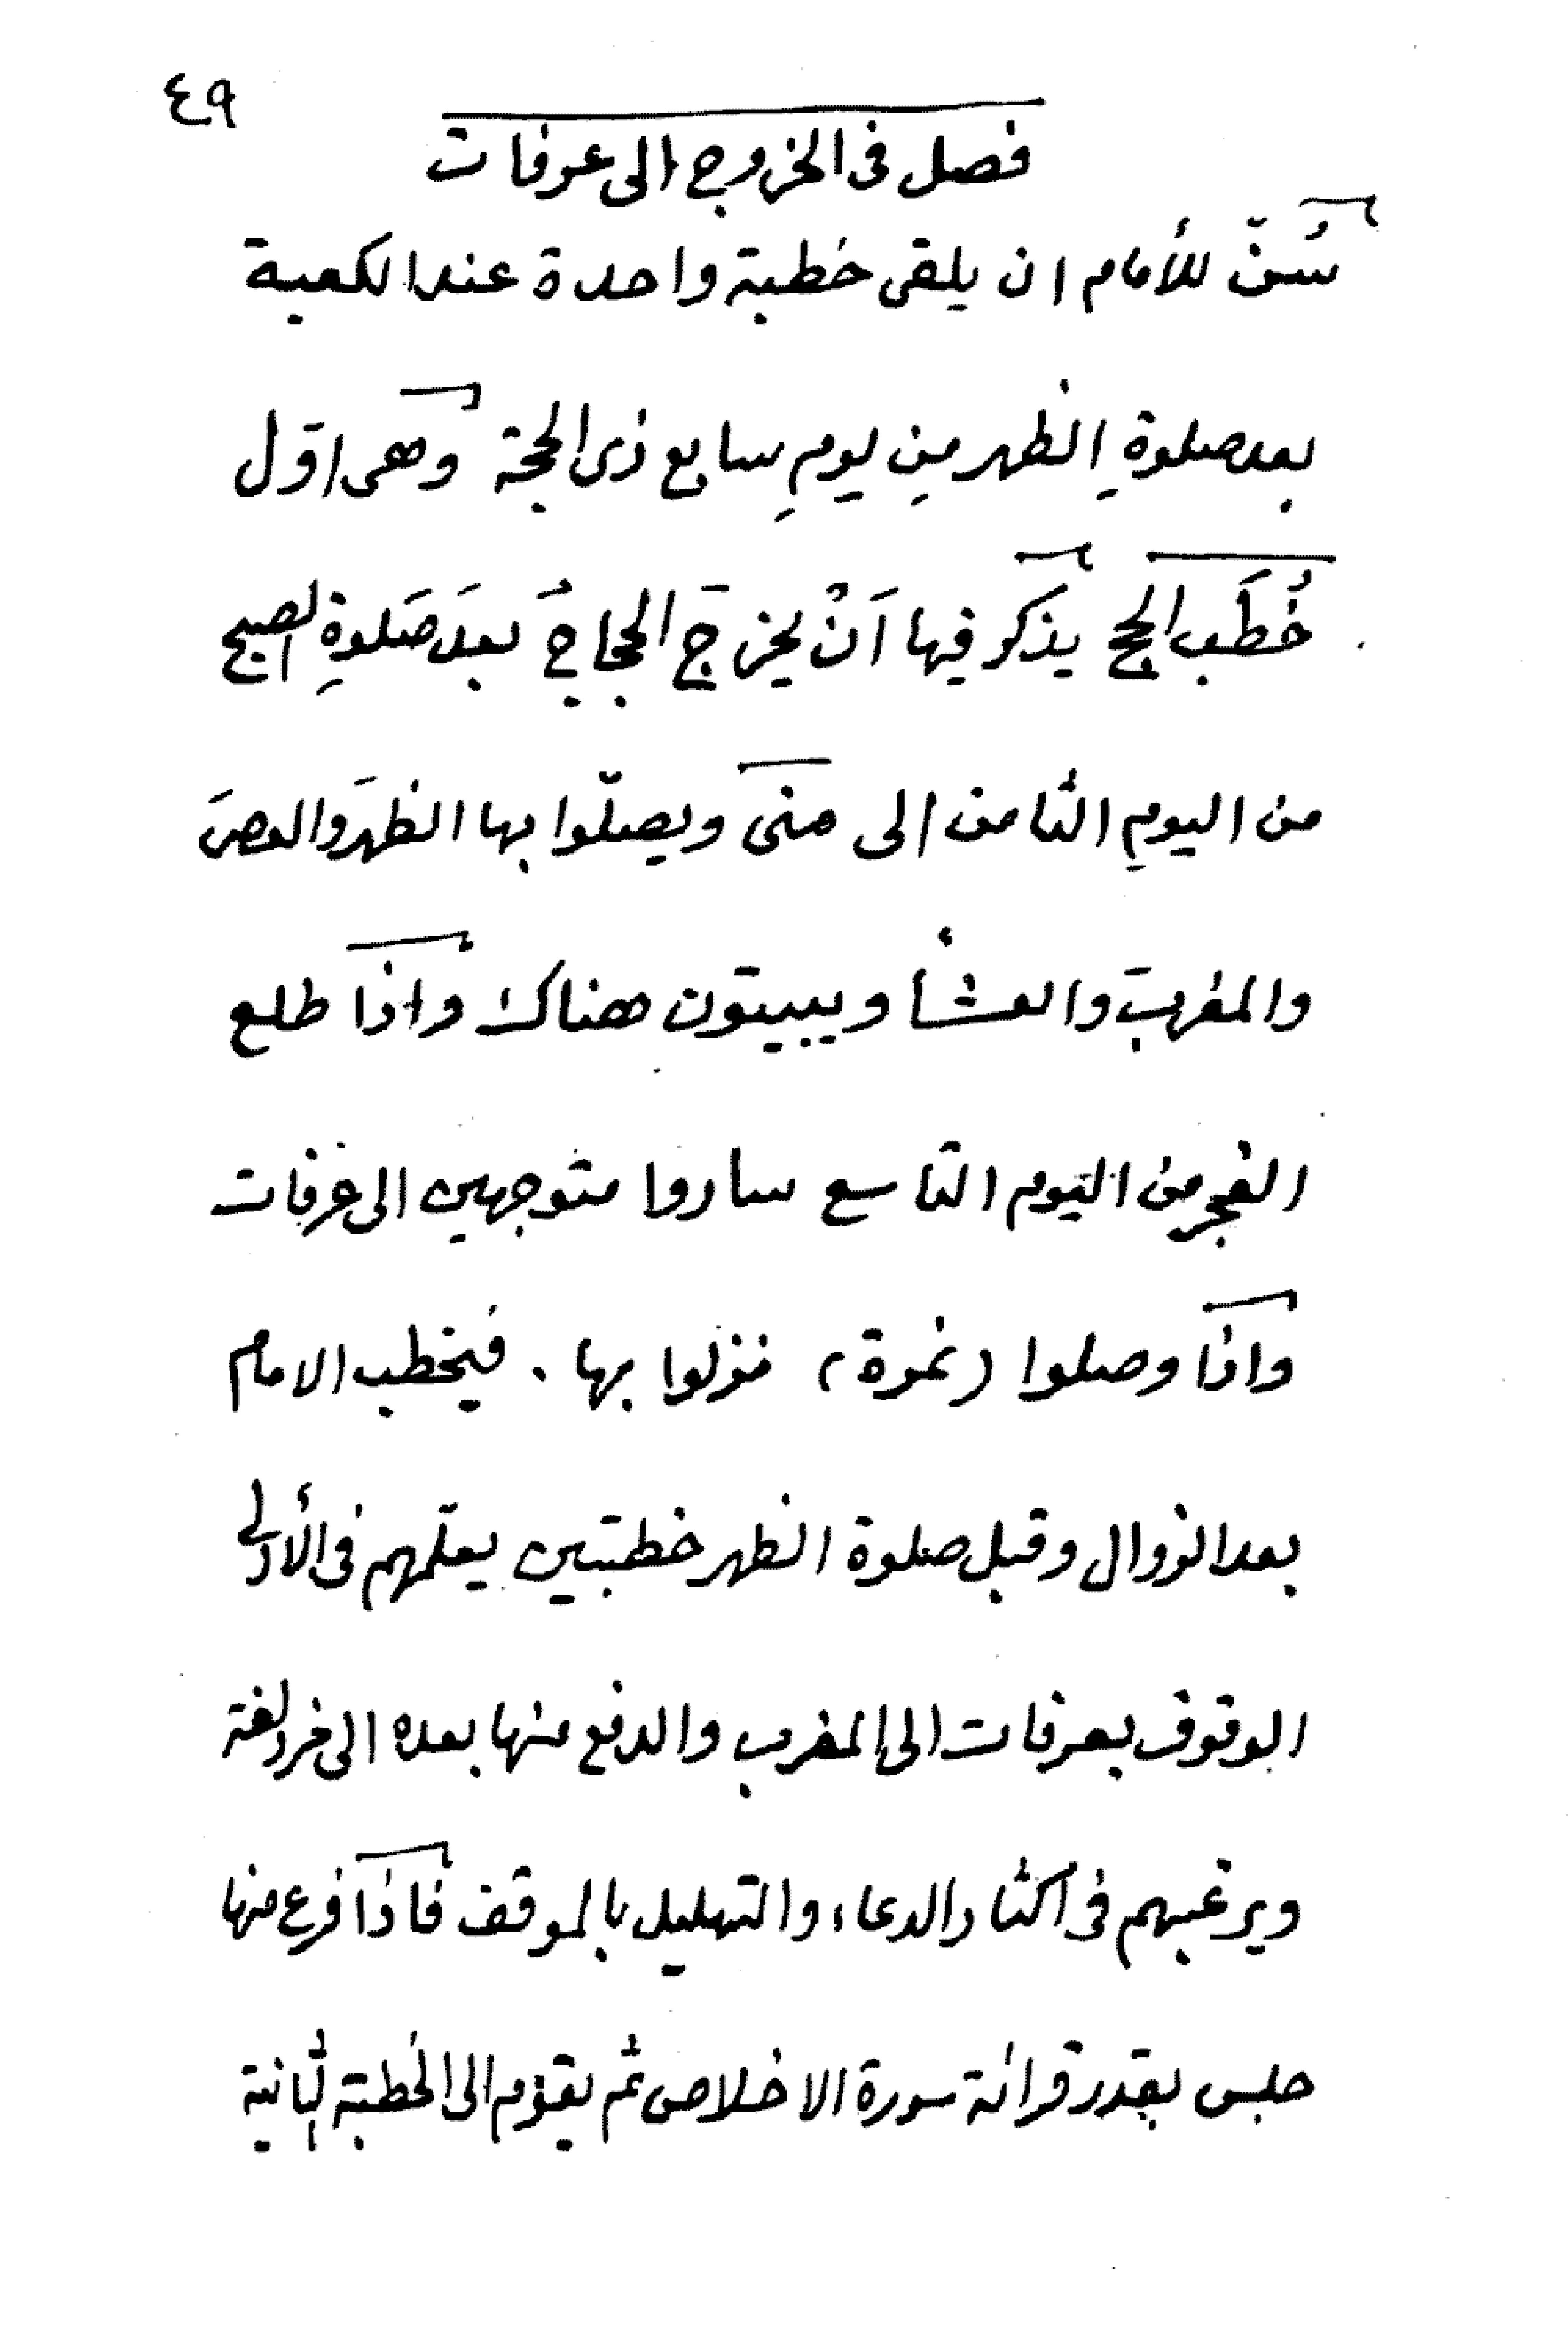 ٤٩
فصل فى الخروج الى عرفات
سُنّ للأمام ان يلقى خطبة واحدة عند الكعبة
بعد صلوةِ الظهر مِن يومِ سابع ذى الحجة وهى اوّل
خُطَب الحج يذكر فيها اَنْ يخرجَ الحجاجُ بعدَ صَلوةِ الصبح
من اليومِ الثامن الى منى ويصلّوا بها الظهرَ والعصَر
والمغربَ والعشأ ويبيتون هناك واذا طلع
الفجر من اليوم التاسع ساروا متوجهين الى عرفات
واذا وصلوا (نمرة) نزلوا بها . فيخطب الامام
بعد الزوال وقبل صلوة الظهر خطبتين يعلّمهم فى الأولى
الوقوف بعرفات الى المغرب والدفع منها بعده الى مزدلفة
ويرغبهم فى اكثار الدعاء والتهليل بالموقف فاذا فرغ منها
جلس بقدر قرائة سورة الاخلاص ثم يقوم الى الخطبة الثانية